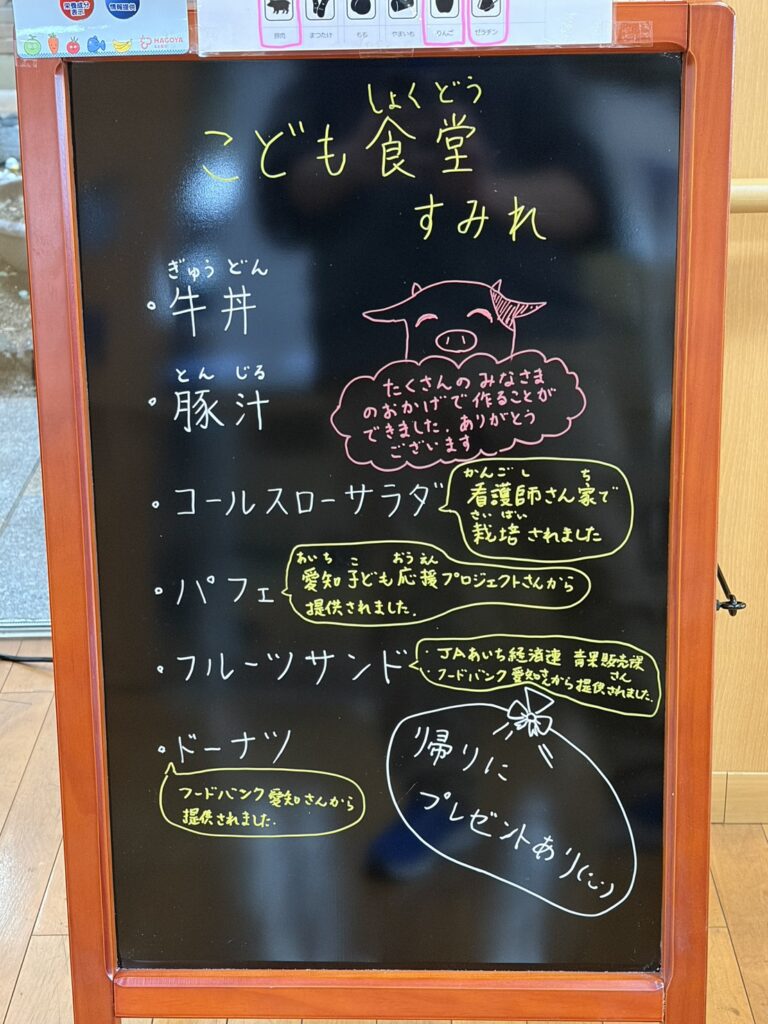 栄養成分
表示
情報提供
HAGOYA
豚肉
まつたけ
もも
やまいも
りんご
ゼラチン
しょくどう
こども食堂
すみれ
ぎゅうどん
・牛丼
とんじる
・豚汁
たくさんのみなさま
のおかげで作ることが
できました。ありがとう
ございます
・コールスローサラダ
かんごし ち
看護師さん家で
さいばい
栽培されました
・パフェ
あいち こ おうえん
愛知子ども応援プロジェクトさんから
提供されました。
・フルーツサンド
・JAあいち経済連 青果販売課
さん
・フードバンク愛知さんから提供されました。
・ドーナツ
フードバンク愛知さんから
提供されました。
帰りに
プレゼントあり